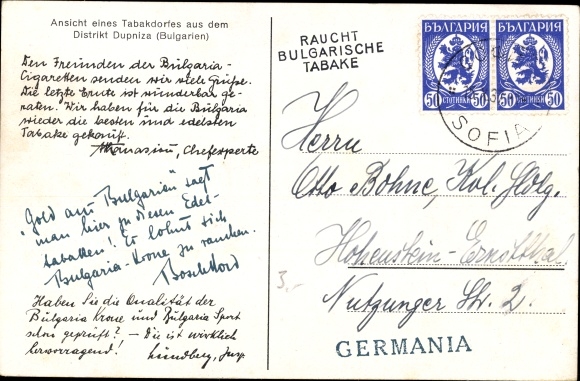 Ansicht eines Tabakdorfes aus dem
Distrikt Dupniza (Bulgarien)
Den Freunden der Bulgaria-
Cigaretten senden wir viele Grüße.
Die letzte Ernte ist wunderbar ge-
raten. Wir haben für die Bulgaria
wieder die besten und edelsten
Tabake gekauft.
Athanasiou, Chefexperte
"Gold aus Bulgarien" sagt
man hier zu diesen Edel-
tabakken! Es lohnt sich
Bulgaria-Krone zu rauchen.
Haben Sie die Qualität der
Bulgaria Krone und Bulgaria Sport
schon geprüft? – Die ist wirklich
hervorragend! Lundberg,
RAUCHT
BULGARISCHE
TABAKE
БЪЛГАРИЯ
50 СТОТИНКИ 50
БЪЛГАРИЯ
50 СТОТИНКИ 50
SOFIA
Herrn
Otto Böhne, Kol. Hdlg.
Hohenstein-Ernstthal
Str. 2.
3.-
GERMANIA